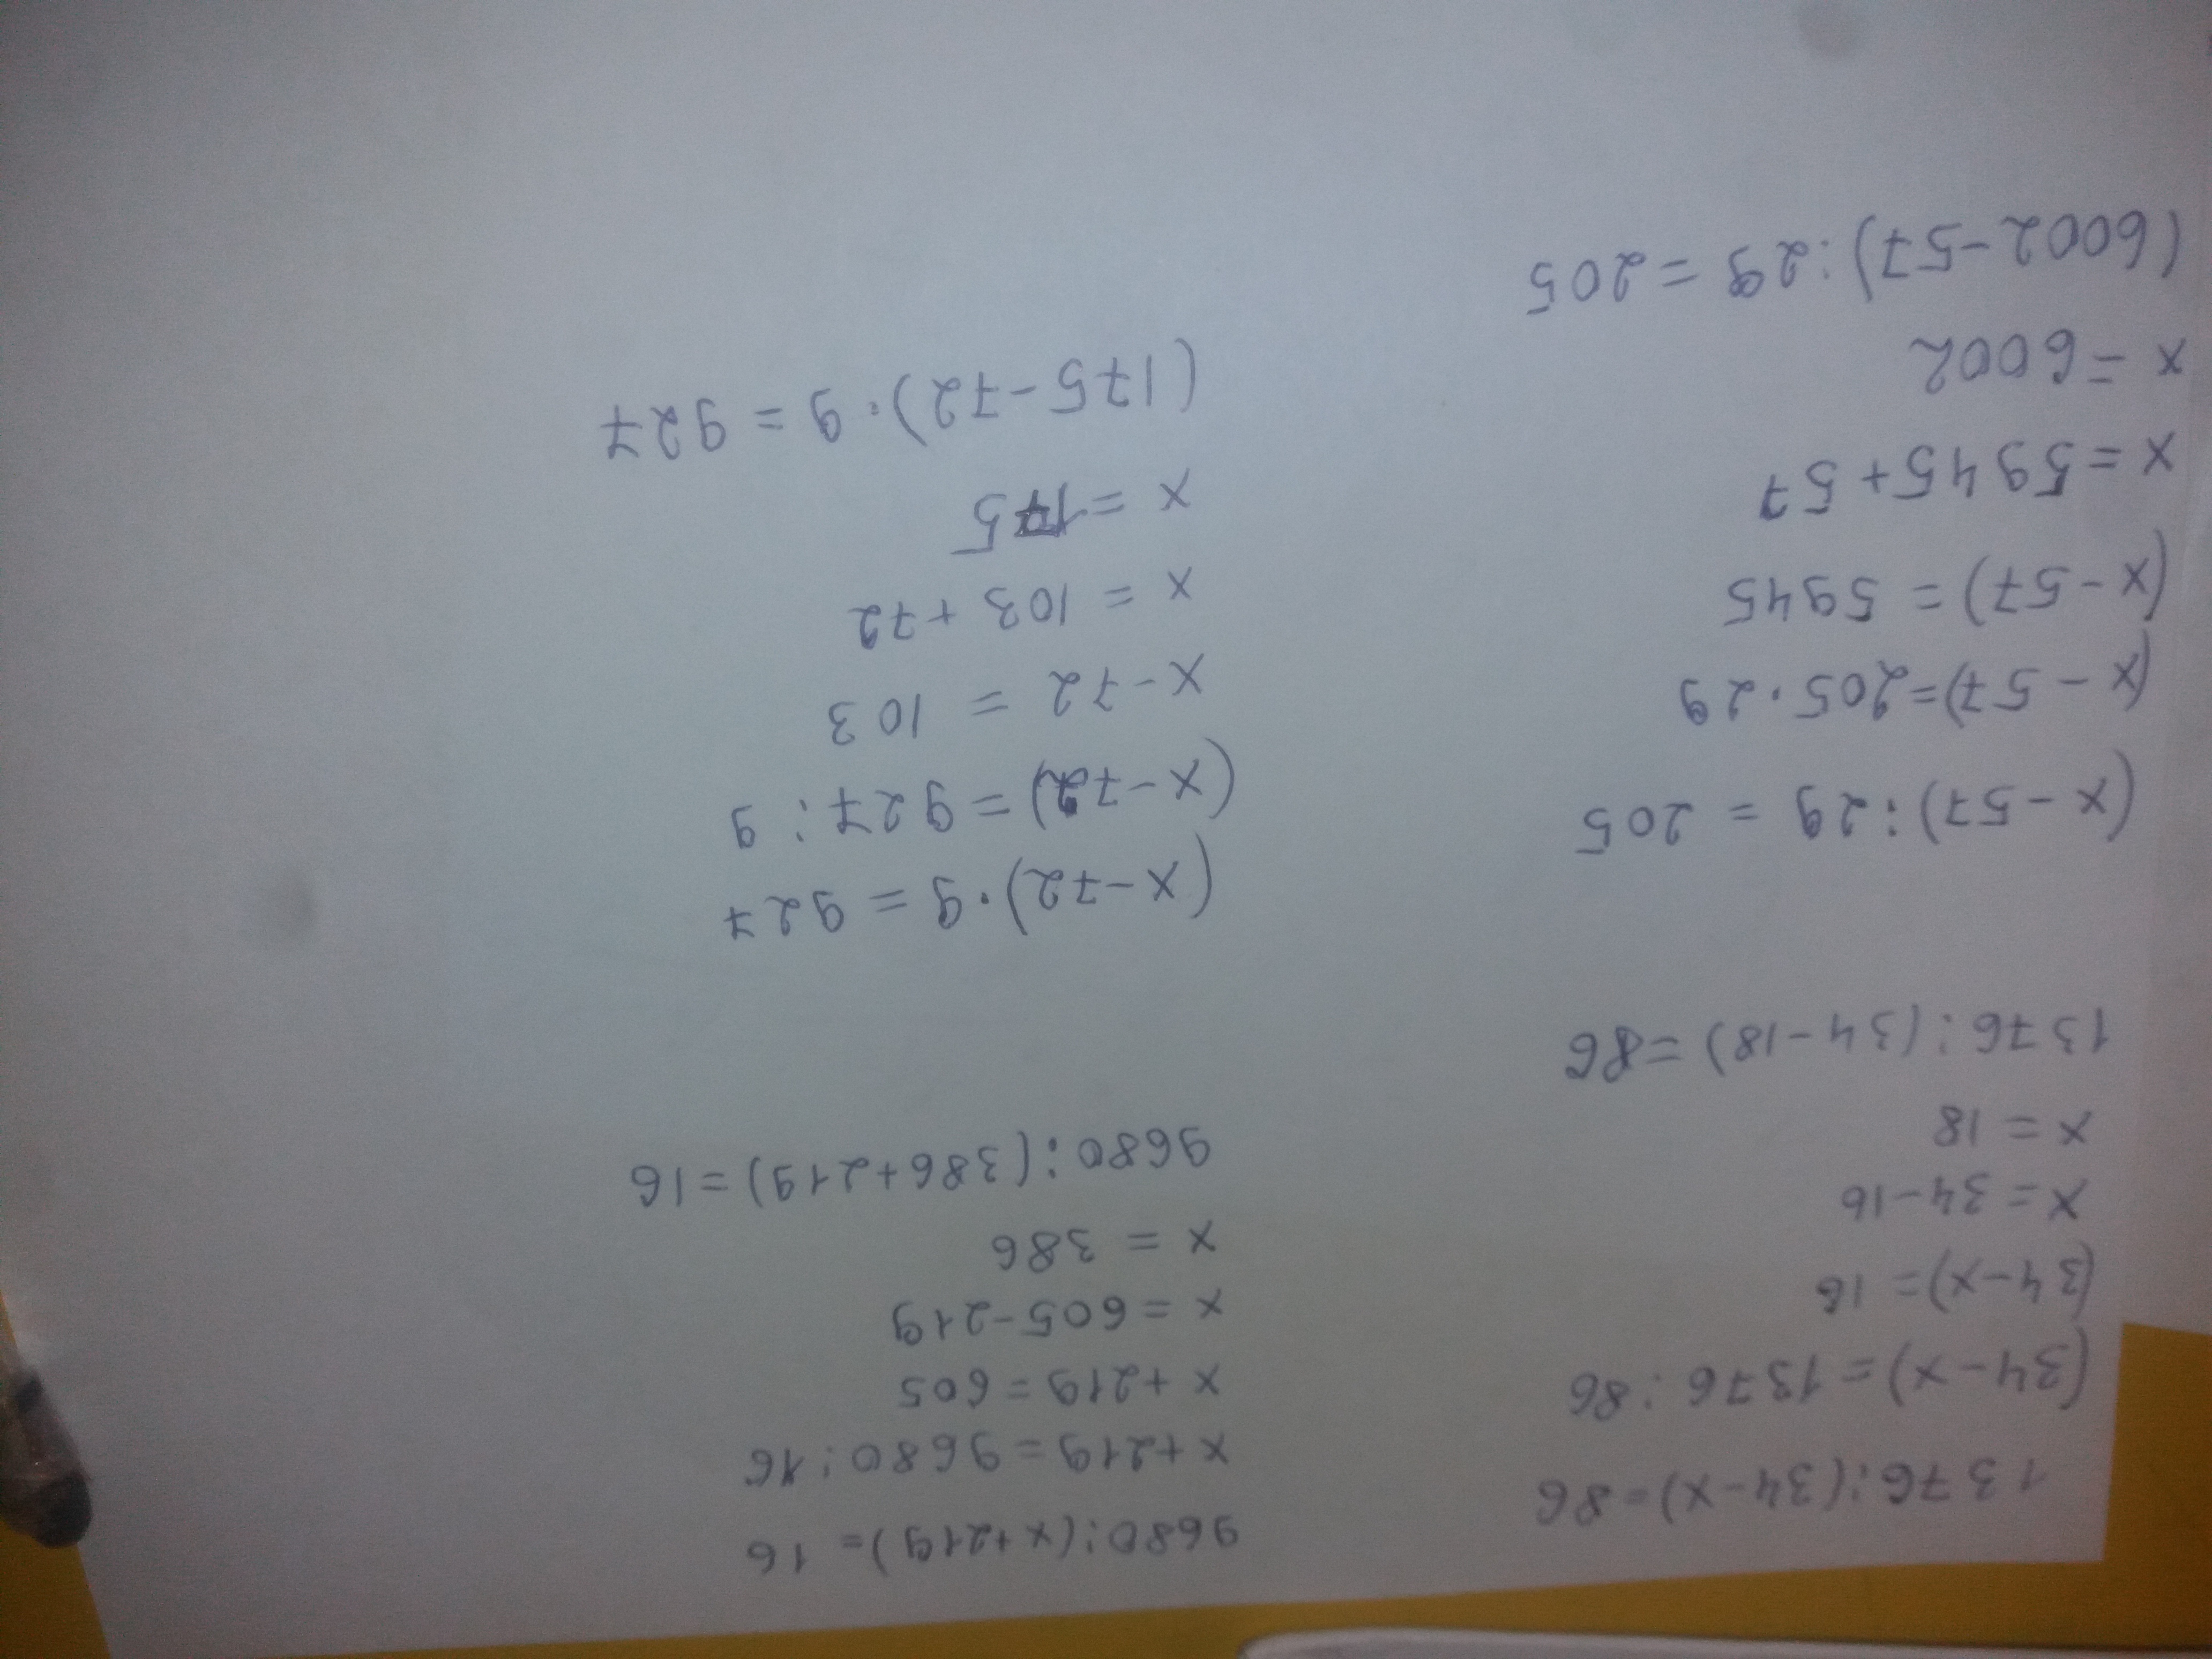 1376:(34-x)=86
(34-x)=1376:86
(34-x)=16
x=34-16
x=18
1376:(34-18)=86
9680:(x+219)=16
x+219=9680:16
x+219=605
x=605-219
x=386
9680:(386+219)=16
(x-57):29=205
(x-57)=205·29
(x-57)=5945
x=5945+57
x=6002
(6002-57):29=205
(x-72)·9=927
(x-72)=927:9
x-72=103
x=103+72
x=175
(175-72)·9=927